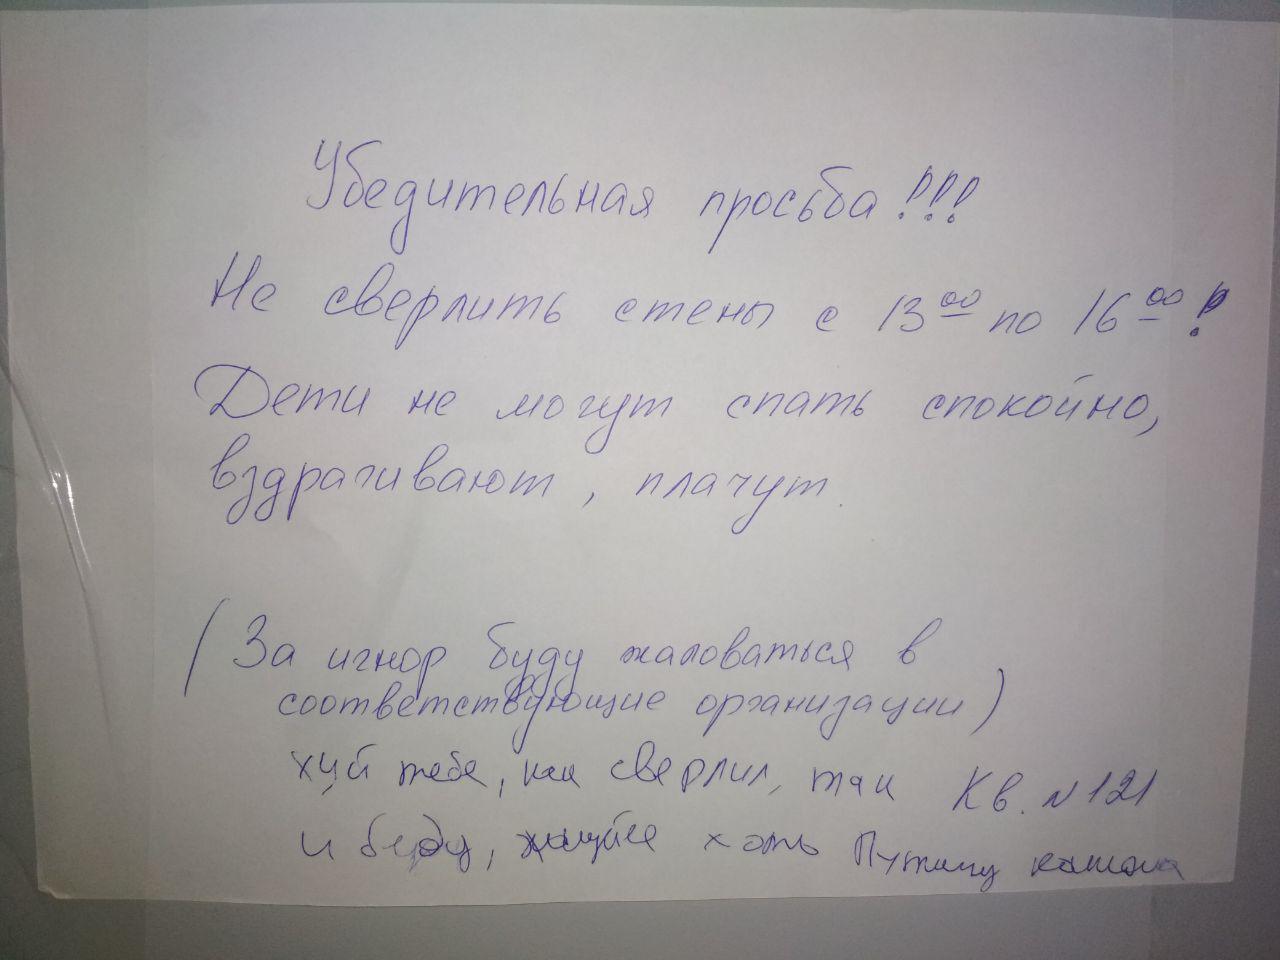 Убедительная просьба!!!
Не сверлить стены с 13⁰⁰ по 16⁰⁰!
Дети не могут спать спокойно,
вздрагивают, плачут.
(За игнор буду жаловаться в
соответствующие организации)
Кв. №121
хуй тебе, как сверлил, так
и буду, хоть Путину